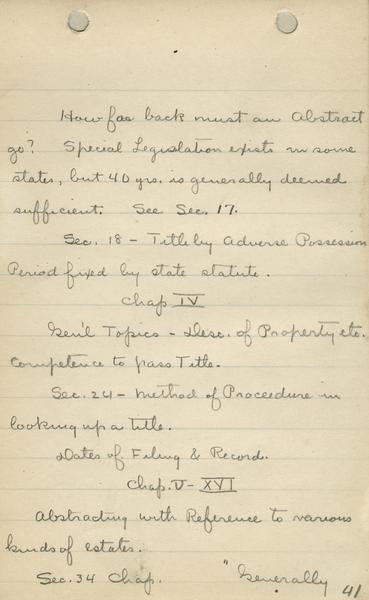 How far back must an Abstract
go? Special Legislation exists in some
states, but 40 yrs. is generally deemed
sufficient. See Sec. 17.
Sec. 18 - Title by Adverse Possession
Period fixed by state statute.
Chap IV
Gen'l Topics - Desc. of Property etc.
Competence to pass Title.
Sec. 24 - Method of Proceedure in
looking up a title.
Dates of Filing & Record.
Chap. V - XVI
Abstracting with Reference to various
kinds of estates.
Sec. 34 Chap. " Generally
41